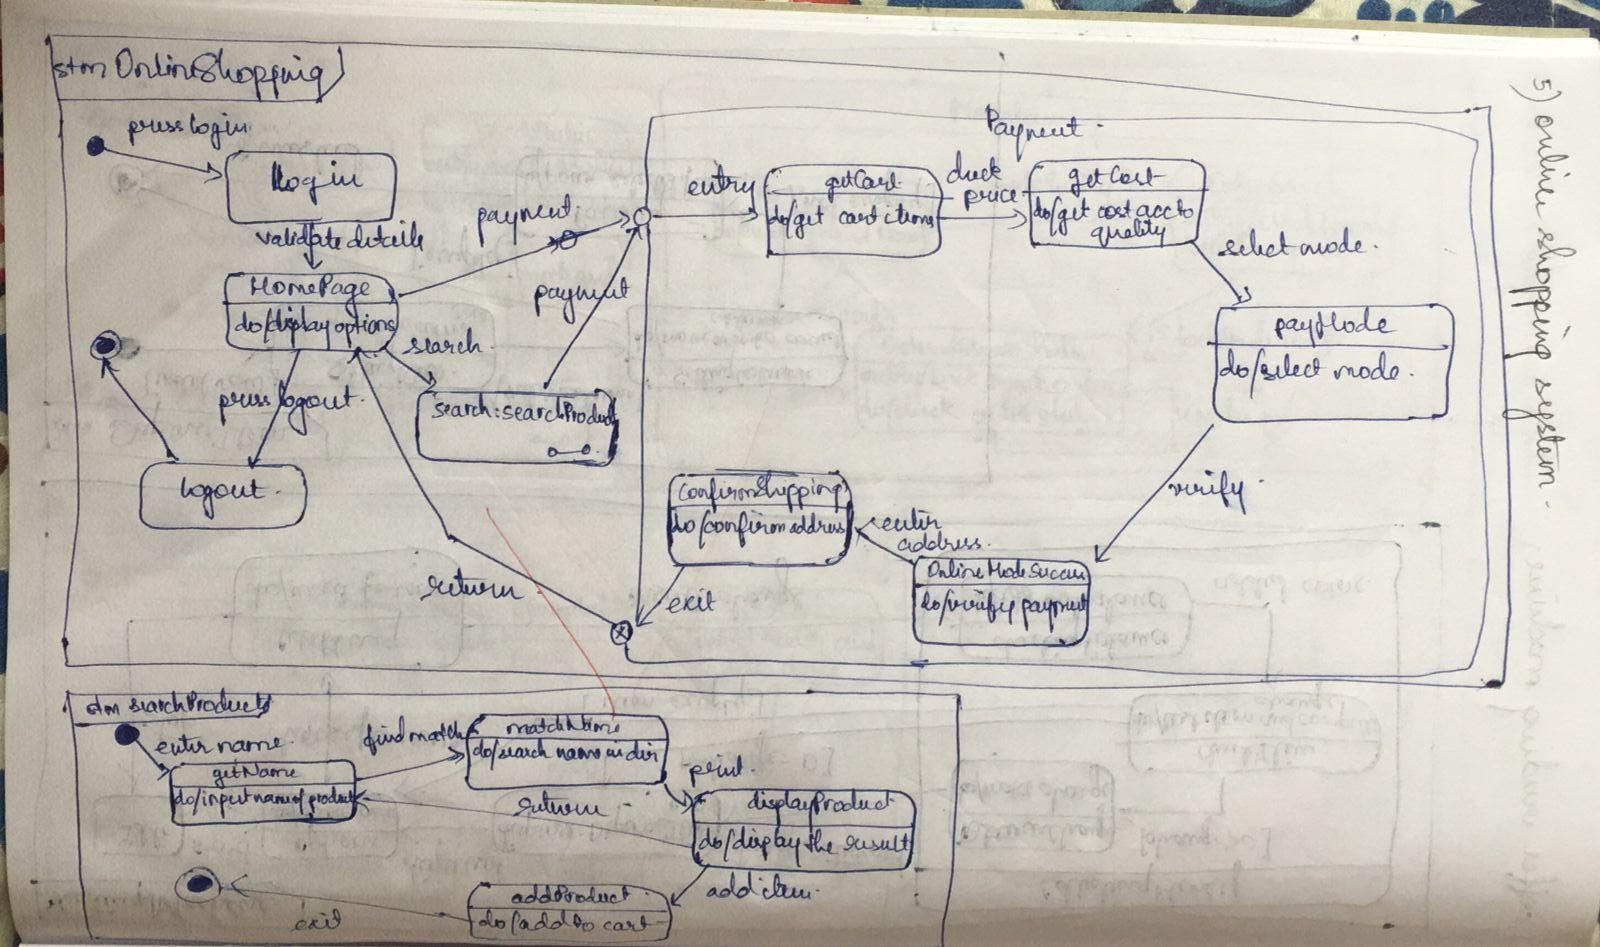 5) online shopping system.
stm OnlineShopping
press login
Login
validate details
HomePage
do/display options
payment
payment
search
press logout.
logout
search:searchProduct
return
Payment
entry
getCart
do/get cart items
price
getCost
do/get cost acc to
quality
select mode.
payMode
do/select mode.
verify
OnlineModeSuccess
do/verify payment
enter
address
ConfirmShipping
do/confirm address
exit
stm searchProducts
enter name.
getName
do/input name of product
find match
matchName
do/search name in dir
print
return
displayProduct
do/display the result
add item
addProduct
do/add to cart
exit